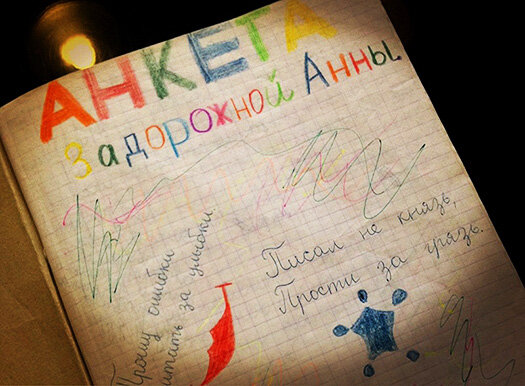 АНКЕТА
Задорожной Анны
Прошу ошибки
считать за улыбки.
Писал не князь,
Прости за грязь.